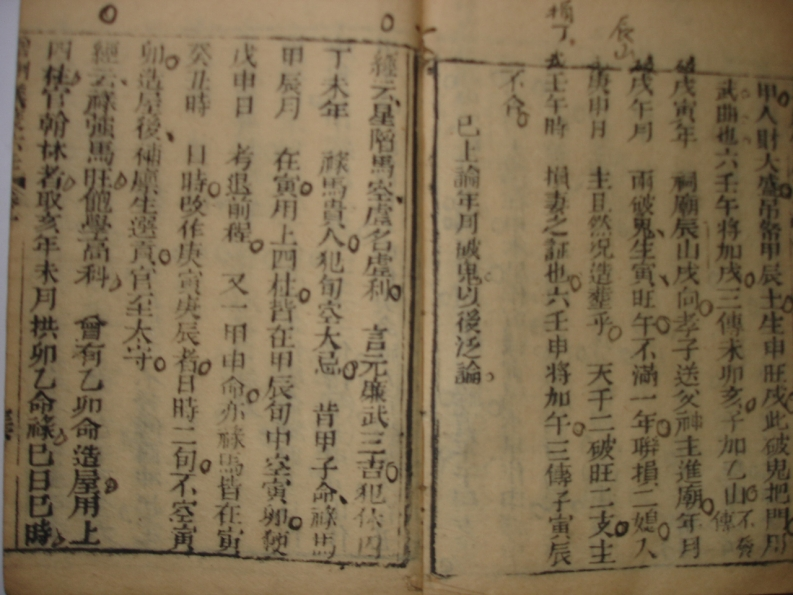 甲人財大盛吊替甲辰土生申旺戌此破鬼把門用
武曲也六壬午將加戌三傳未卯亥子加乙山
戊寅年　祠廟辰山戌向孝子送父神主進廟年月
戊午月　兩破鬼生寅旺午不滿一年聯損二媳人
庚申日　主且然况造塟乎　天干二破旺二支主
壬午時　損妻之証也六壬申將加午三傳子寅辰
不合
已上論年月破鬼以後泛論
辰山
經云星陷馬空虛名虛利　言元廉武三吉犯休囚
丁未年　祿馬貴人犯旬空大忌　昔甲子命祿馬
甲辰月　在寅用上四柱皆在甲辰旬中空寅卯硬
戊申日　考退前程　又一甲申命亦祿馬皆在寅
癸丑時　日時改作庚寅庚辰者日時二旬不空寅
卯造屋後補廪生選貢官至太守
經云祿強馬旺値學高科　曾有乙卯命造屋用上
四柱官翰林者取亥年未月拱卯乙命祿巳日巳時